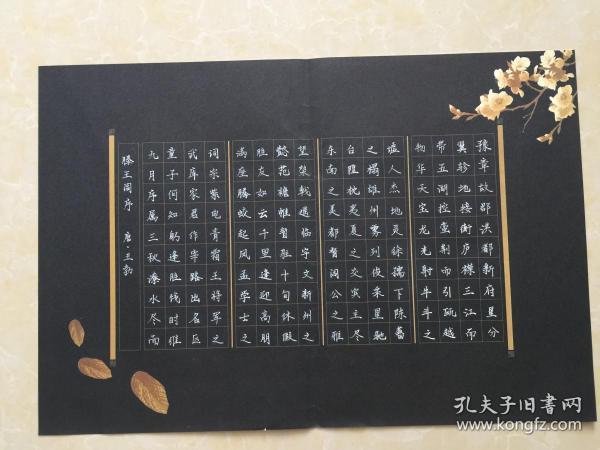 豫章故郡洪都新府星分
翼轸地接衡庐襟三江而
带五湖控蛮荆而引瓯越
物华天宝龙光射牛斗之
墟人杰地灵徐孺下陈蕃
之榻雄州雾列俊采星驰
台隍枕夷夏之交宾主尽
东南之美都督阎公之雅
望棨戟遥临宇文新州之
懿范襜帷暂驻十旬休假
胜友如云千里逢迎高朋
满座腾蛟起凤孟学士之
词宗紫电青霜王将军之
武库家君作宰路出名区
童子何知躬逢胜饯时维
九月序属三秋潦水尽而
滕王阁序 唐·王勃
孔夫子旧书网
www.kongfz.com